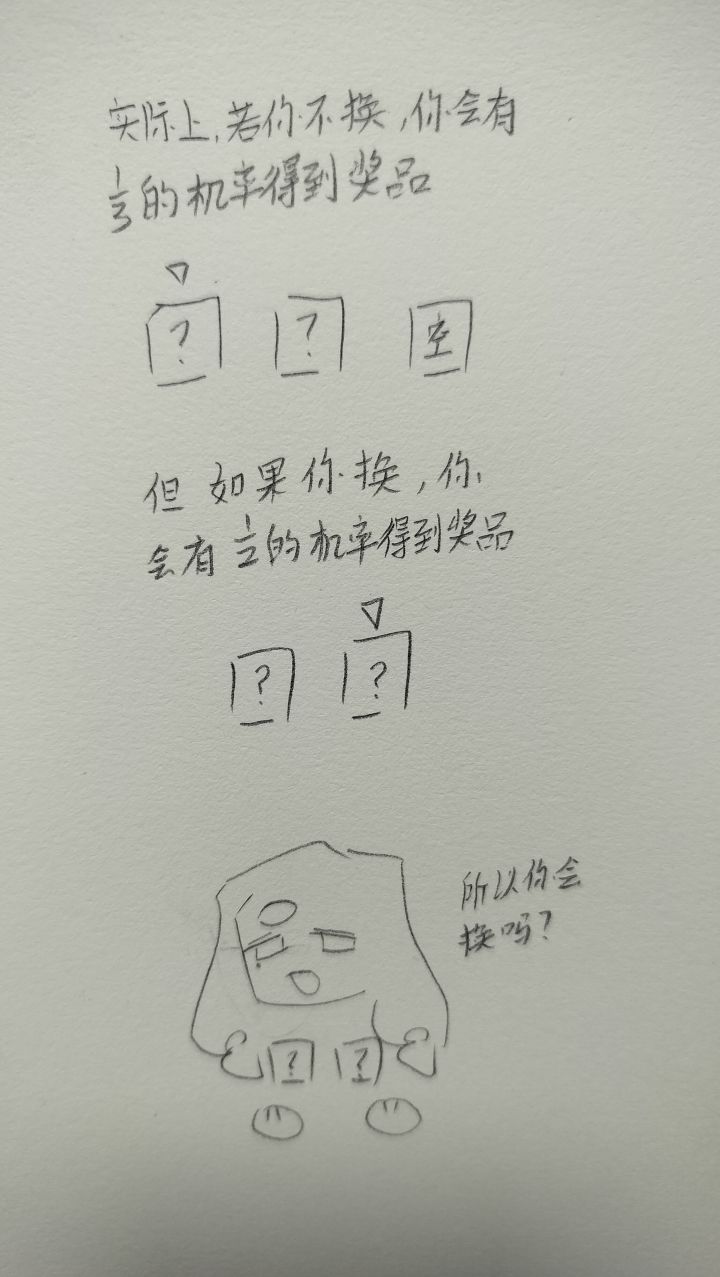 实际上,若你不换,你会有
1/3的机率得到奖品
? ? 空
但如果你换,你
会有1/2的机率得到奖品
? ?
所以你会
换吗?
? ?